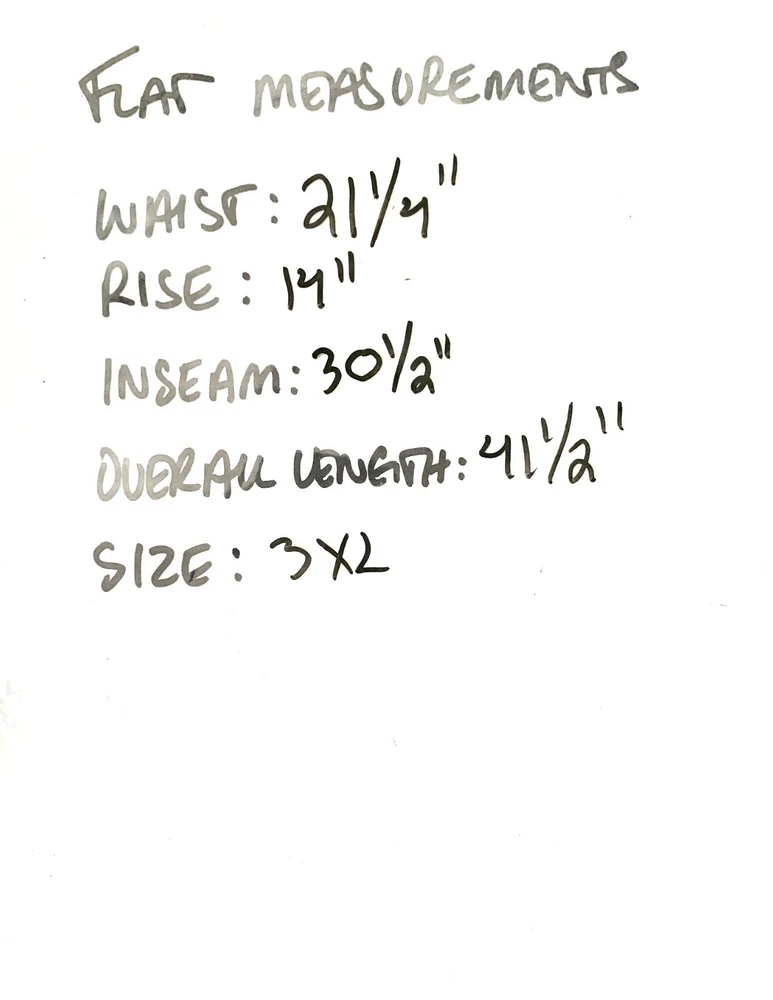 FLAT MEASUREMENTS
WAIST: 21 1/4"
RISE: 14"
INSEAM: 30 1/2"
OVERALL LENGTH: 41 1/2"
SIZE: 3XL